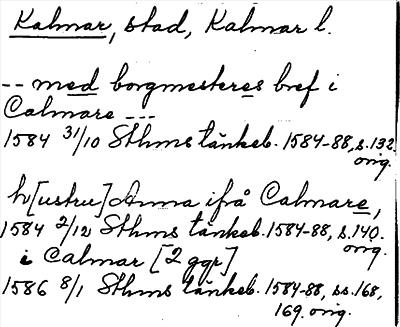 Kalmar, stad, Kalmar l.
-- med borgmesteres bref i
Calmare ---
1584 31/10 Sthms tänkeb. 1584-88, s. 132.
orig.
h[ustru] Anna ifå Calmare,
1584 2/12 Sthms tänkeb. 1584-88, s. 140.
orig.
i Calmar [2 ggr]
1586 8/1 Sthms tänkeb. 1584-88, ss. 168,
169. orig.